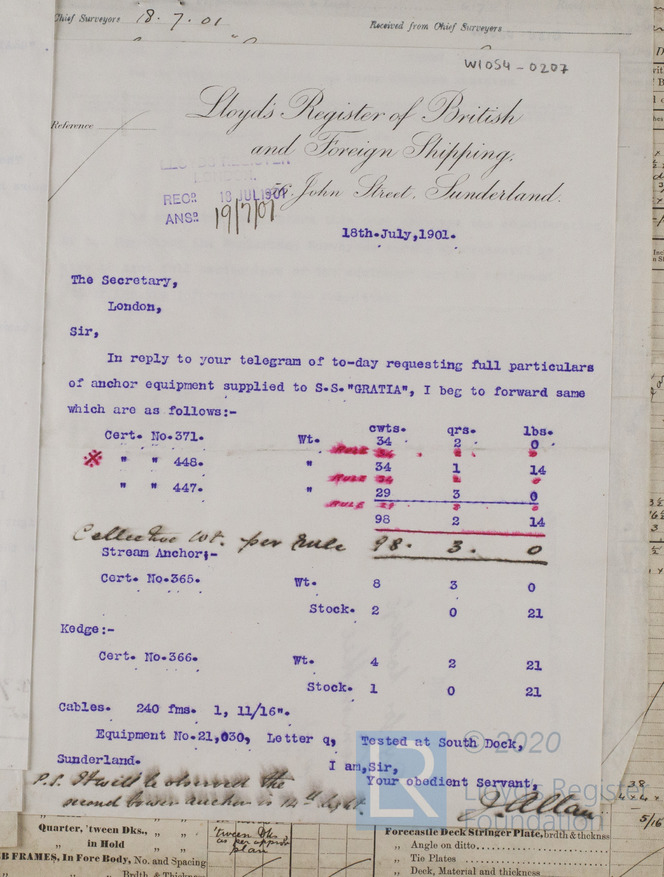 Chief Surveyors 18.7.01
Received from Chief Surveyors
W1054-0207
Reference
Lloyd's Register of British
and Foreign Shipping.
LLOYD'S REGISTER
LONDON.
REC^D. 18 JUL 1901
ANS^D. 19/7/01
John Street, Sunderland.
18th.July,1901.
The Secretary,
London,
Sir,
In reply to your telegram of to-day requesting full particulars
of anchor equipment supplied to S.S."GRATIA", I beg to forward same
which are as follows:-
cwts. qrs. lbs.
Cert. No.371. Wt. 34 2 0
RULE 34
※ " " 448. " 34 1 14
RULE 34
" " 447. " 29 3 0
RULE 29 3 0
98 2 14
Collective wt. per Rule 98. 3. 0
Stream Anchor:-
Cert. No.365. Wt. 8 3 0
Stock. 2 0 21
Kedge:-
Cert. No.366. Wt. 4 2 21
Stock. 1 0 21
Cables. 240 fms. 1, 11/16".
Equipment No.21,030, Letter q, Tested at South Dock,
Sunderland. I am,Sir,
Your obedient Servant,
P.S. It will be observed the
second bower anchor is 14 lb light.
J. Allan
© 2020
LR
Lloyd's Register
Foundation
Quarter, 'tween Dks., " "
in Hold " "
'tween Dks
as per approv
plan
B FRAMES, In Fore Body, No. and Spacing
" " Brdth. & Thickness
Forecastle Deck Stringer Plate, brdth & thickns
" Angle on ditto
" Tie Plates
" Deck, Material and thickness
5/16